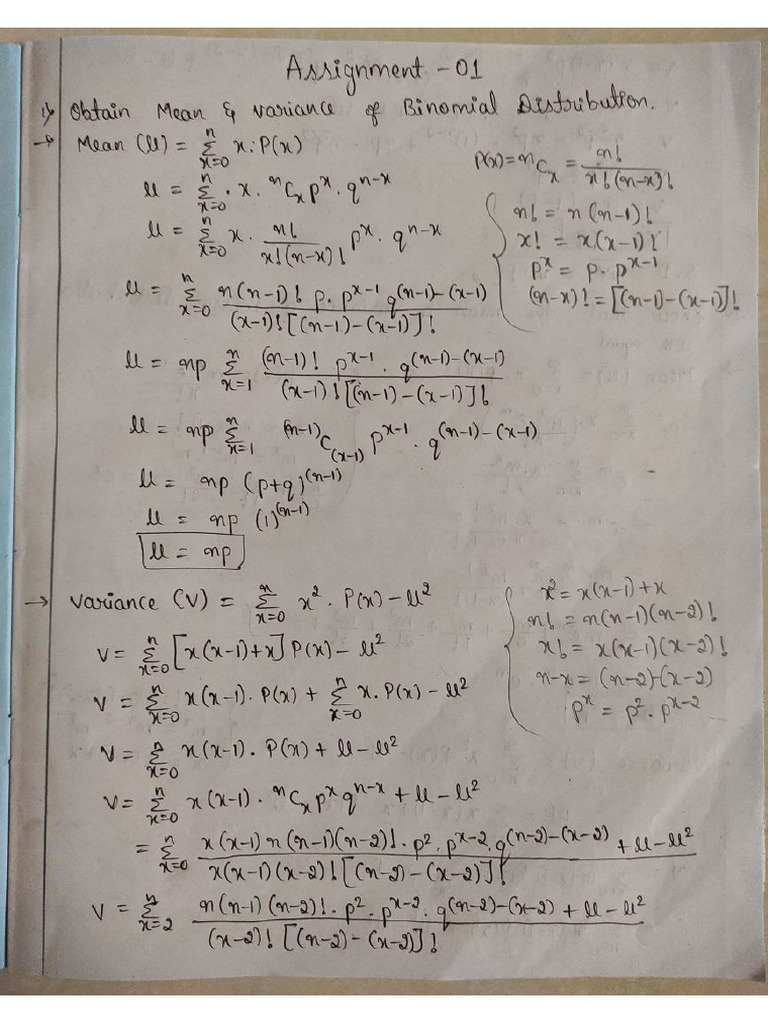 Assignment - 01
1) Obtain Mean & Variance of Binomial Distribution.
→ Mean (μ) = Σ_{x=0}^{n} x·P(x)
P(x) = ⁿCₓ = n!/(x!(n-x)!)
μ = Σ_{x=0}^{n} · x · ⁿCₓ p^x · q^{n-x}
n! = n(n-1)!
μ = Σ_{x=0}^{n} x · n!/(x!(n-x)!) p^x · q^{n-x}
x! = x(x-1)!
p^x = p · p^{x-1}
(n-x)! = [(n-1)-(x-1)]!
μ = Σ_{x=0}^{n} n(n-1)! p · p^{x-1} q^{(n-1)-(x-1)} / (x-1)! [(n-1)-(x-1)]!
μ = np Σ_{x=1}^{n} (n-1)! p^{x-1} · q^{(n-1)-(x-1)} / (x-1)! [(n-1)-(x-1)]!
μ = np Σ_{x=1}^{n} ^{(n-1)}C_{(x-1)} p^{x-1} · q^{(n-1)-(x-1)}
μ = np (p+q)^{(n-1)}
μ = np (1)^{(n-1)}
μ = np
→ Variance (V) = Σ_{x=0}^{n} x² · P(x) - μ²
x² = x(x-1)+x
n! = n(n-1)(n-2)!
x! = x(x-1)(x-2)!
n-x = (n-2)-(x-2)
p^x = p² · p^{x-2}
V = Σ_{x=0}^{n} [x(x-1)+x] P(x) - μ²
V = Σ_{x=0}^{n} x(x-1) · P(x) + Σ_{x=0}^{n} x · P(x) - μ²
V = Σ_{x=0}^{n} x(x-1) · P(x) + μ - μ²
V = Σ_{x=0}^{n} x(x-1) · ⁿCₓ p^x q^{n-x} + μ - μ²
= Σ_{x=0}^{n} x(x-1) n(n-1)(n-2)! · p² · p^{x-2} · q^{(n-2)-(x-2)} / x(x-1)(x-2)! [(n-2)-(x-2)]! + μ - μ²
V = Σ_{x=2}^{n} n(n-1)(n-2)! · p² · p^{x-2} · q^{(n-2)-(x-2)} + μ - μ² / (x-2)! [(n-2)-(x-2)]!